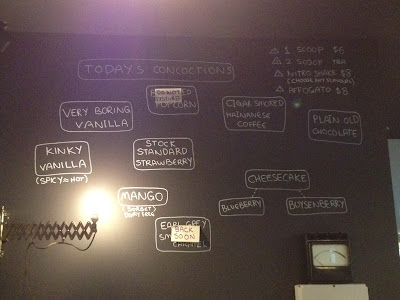 TODAY'S CONCOCTIONS
△ 1 SCOOP $6
△ 2 SCOOP
△ NITRO SHAKE $8
(CHOOSE ANY FLAVOUR)
△ AFFOGATO $8
POPCORN
VERY BORING
VANILLA
CIGAR SMOKED
HAINANESE
COFFEE
PLAIN OLD
CHOCOLATE
KINKY
VANILLA
(SPICY = HOT)
STOCK
STANDARD
STRAWBERRY
CHEESECAKE
BLUEBERRY
BOYSENBERRY
MANGO
(SORBET)
DAIRY FREE
EARL GREY
BACK
SOON